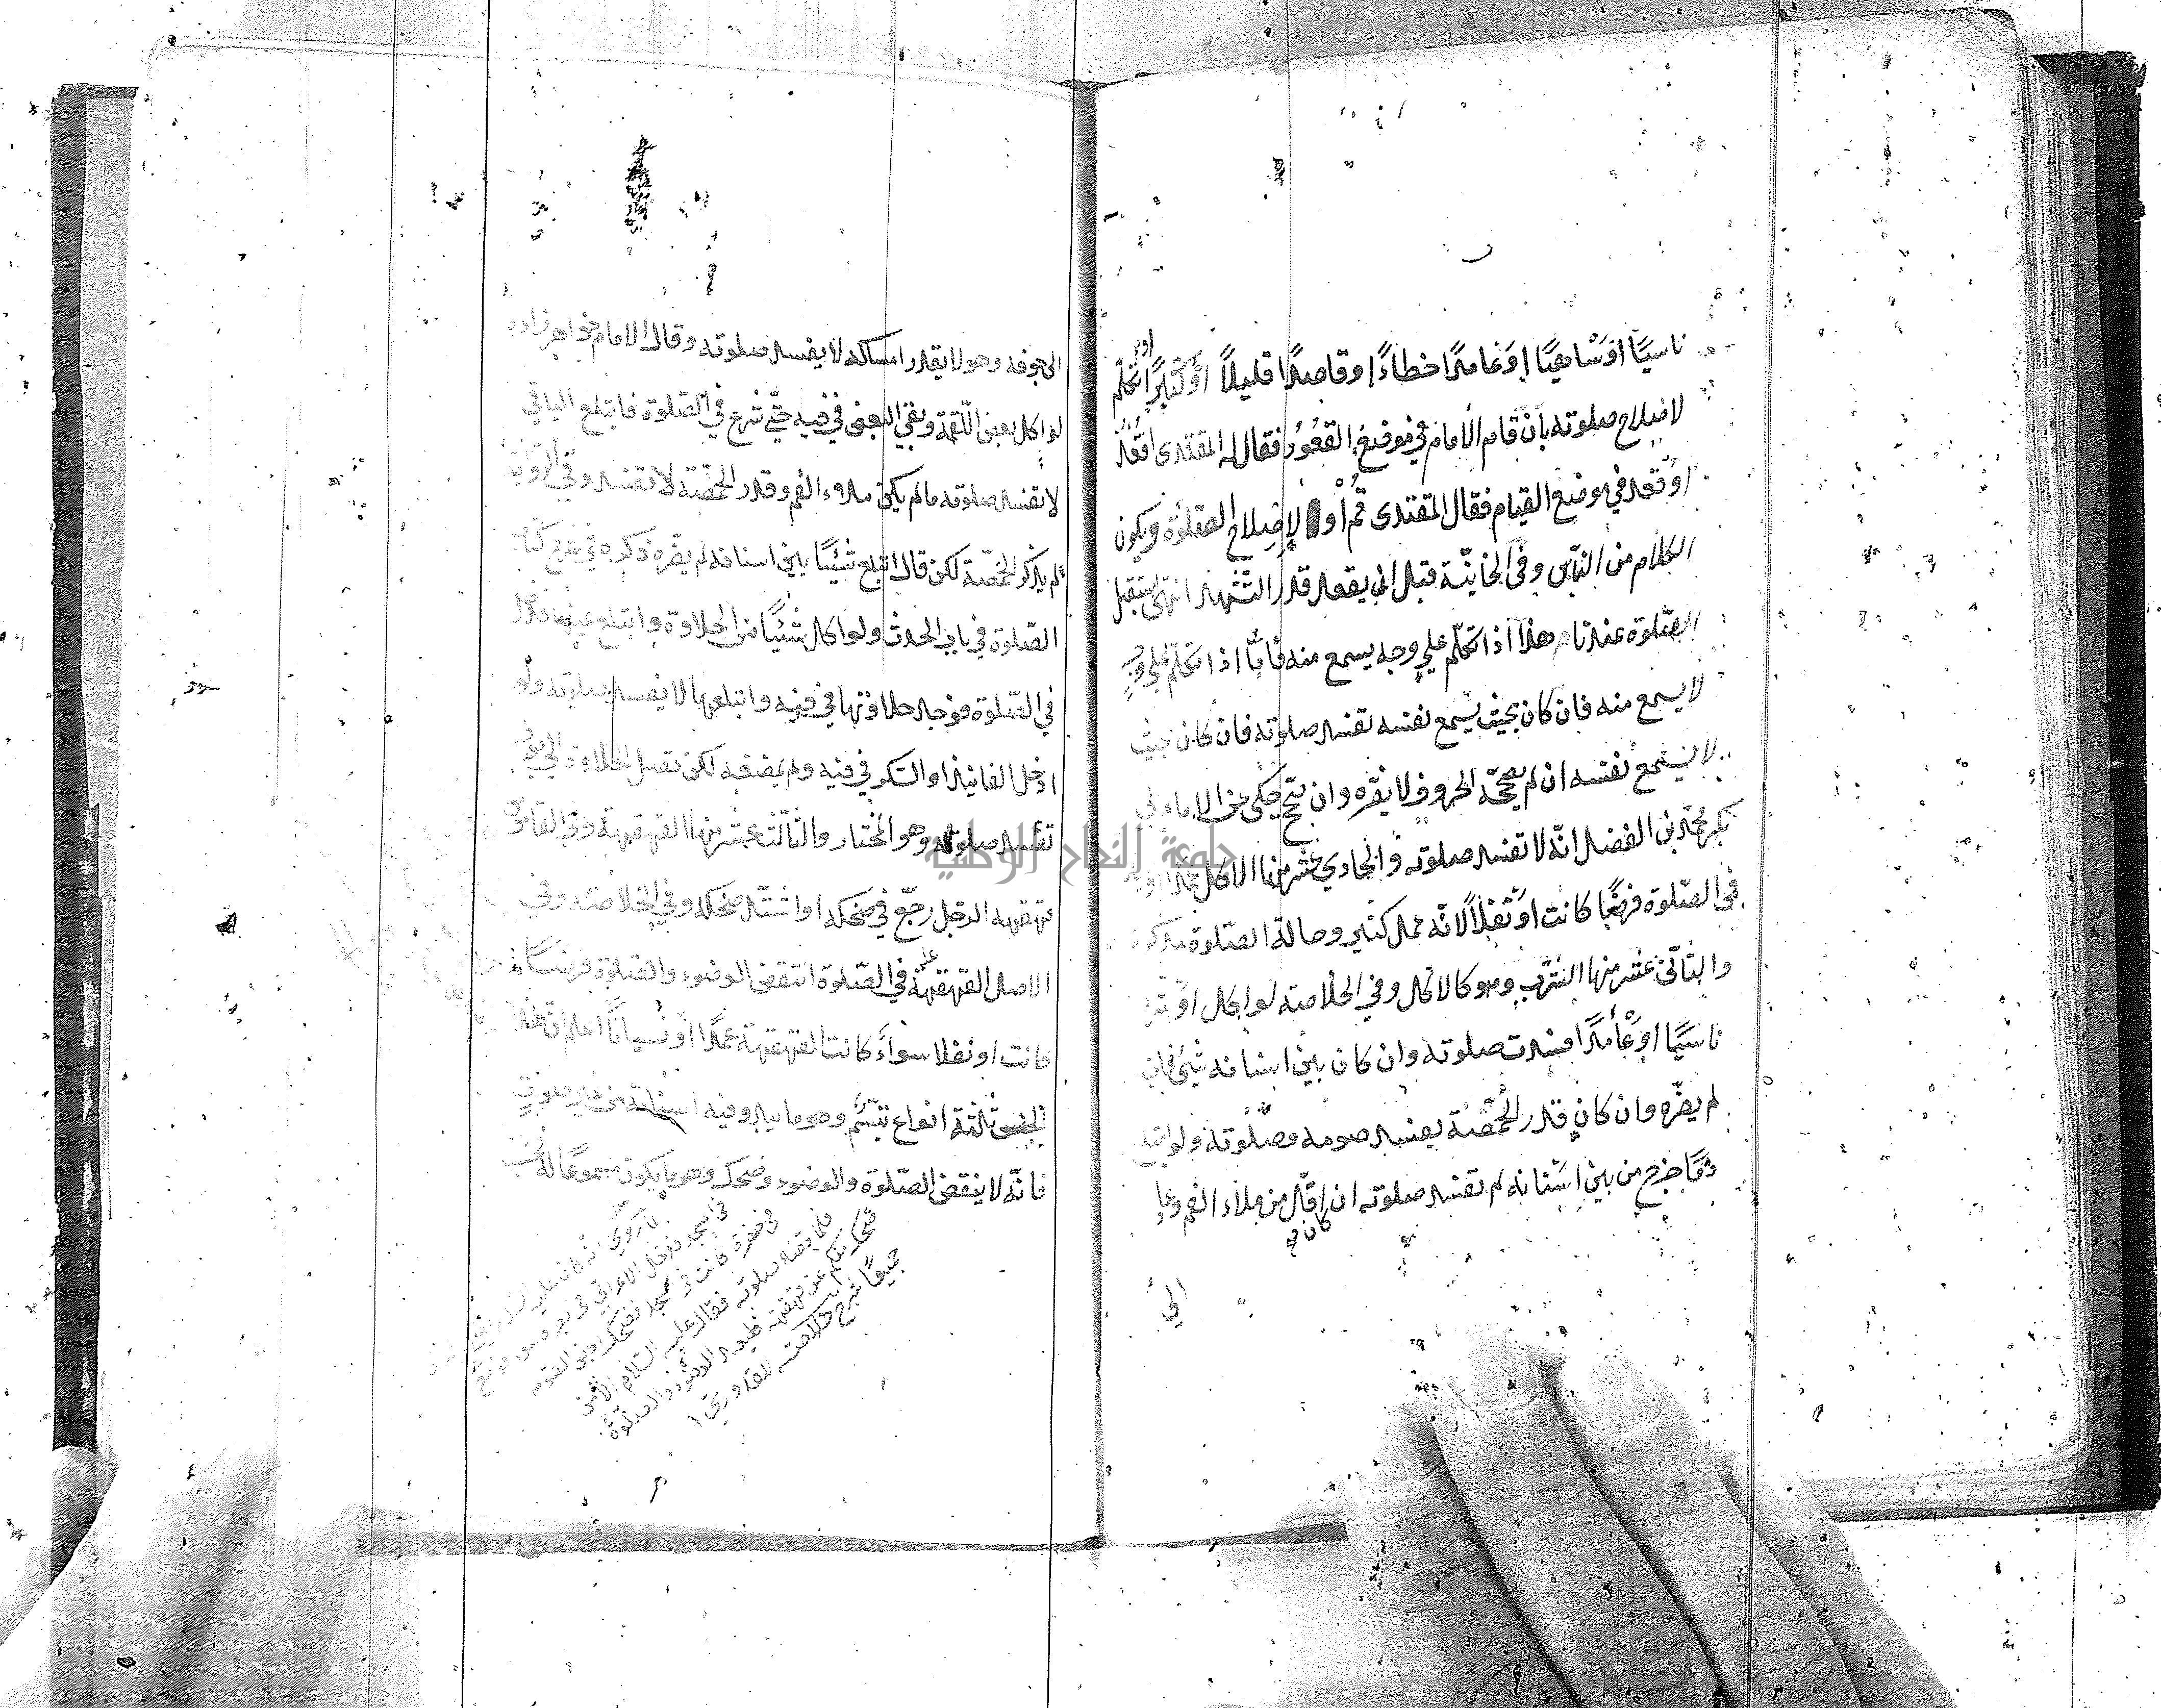 ناسيًا او سَاهيًا او عَامدًا خطاءً او قاصدًا قليلاً او كثيرًا تكلّم
لاصلاح صلوته بان قام الامام في موضع القعود فقال له المقتدى اقعُد
او قعد في موضع القيام فقال المقتدى قُمْ او لا لاصلاح الصّلوة ويكون
الكلام من النّاس وفي الخانيّة قبل ان يقعد قدر التّشهد انتهى يستقبل
الصّلوة عندنا هذا اذا تكلّم على وجه يسمع منه فامّا اذا تكلّم على وجه
لا يسمع منه فان كان بحيث يسمع نفسه تفسد صلوته فان كان بحيث
لا يسمع نفسه ان لم يصحّح الحروف لا يضرّه وان صحّح حكى عن الامام ابي
بكر محمّد بن الفضل انّه لا تفسد صلوته والحادي عشر منها الاكل عمدًا
في الصّلوة فرضًا كانت او نفلاً لانّه عمل كثير وحالة الصّلوة مذكرة
والثّاني عشر منها الشّرب وهو كالاكل وفي الخلاصة لو اكل او شرب
ناسيًا او عَامدًا فسدت صلوته وان كان بين اسنانه شيئ فان
لم يضرّه وان كان قدر الحُمّصة يفسد صومه وصلوته ولو ابتلع
دمًا خرج من بين اسنانه لم تفسد صلوته ان كان اقلّ من ملاء الفم
الى
الى جوفه وهو لا يقدر امساكه لا يفسد صلوته وقال الامام خواهر زاده
لو اكل بعض اللّقمة وبقي البعض في فيه حتّى شرع في الصّلوة فابتلع الباقي
لا تفسد صلوته ما لم يكن ملاء الفم وقدر الحمّصة لا تفسد وفي
لم يذكر الحمّصة لكن قال ابتلع شيئًا بين اسنانه لم يضرّه ذكره في
الصّلوة في باب الحدث ولو اكل شيئًا من الحلاوة وابتلع عينها فدخل
في الصّلوة فوجد حلاوتها في فيه وابتلعها لا يفسد صلوته ولو
ادخل الفانيذ او السّكر في فيه ولم يمضغه لكن تصل الحلاوة الى جوفه
تفسد صلوته وهو المختار والثّالث عشر منها القهقهة وفي القاموس
قهقهه الرّجل رجّع في ضحكه او اشتدّ ضحكه وفي الخلاصة وفي
الاصل القهقهة في الصّلوة تنقض الوضوء والصّلوة فرضًا
كانت او نفلا سواءً كانت القهقهة عمدًا او نسيانًا اعلم ان هذا
الجنس ثلثة انواع تبسّم وهو ما يبدو فيه اسنانه من غير صوت
فانّه لا ينقض الصّلوة والوضوء وضحك وهو ما يكون مسموعًا له
فلمّا قضى صلوته فقال عليه السّلام الا من
ضحك منكم قهقهة فليعد الوضوء والصّلوة
جميعًا شرح للقدوري
جامعة النجاح الوطنية